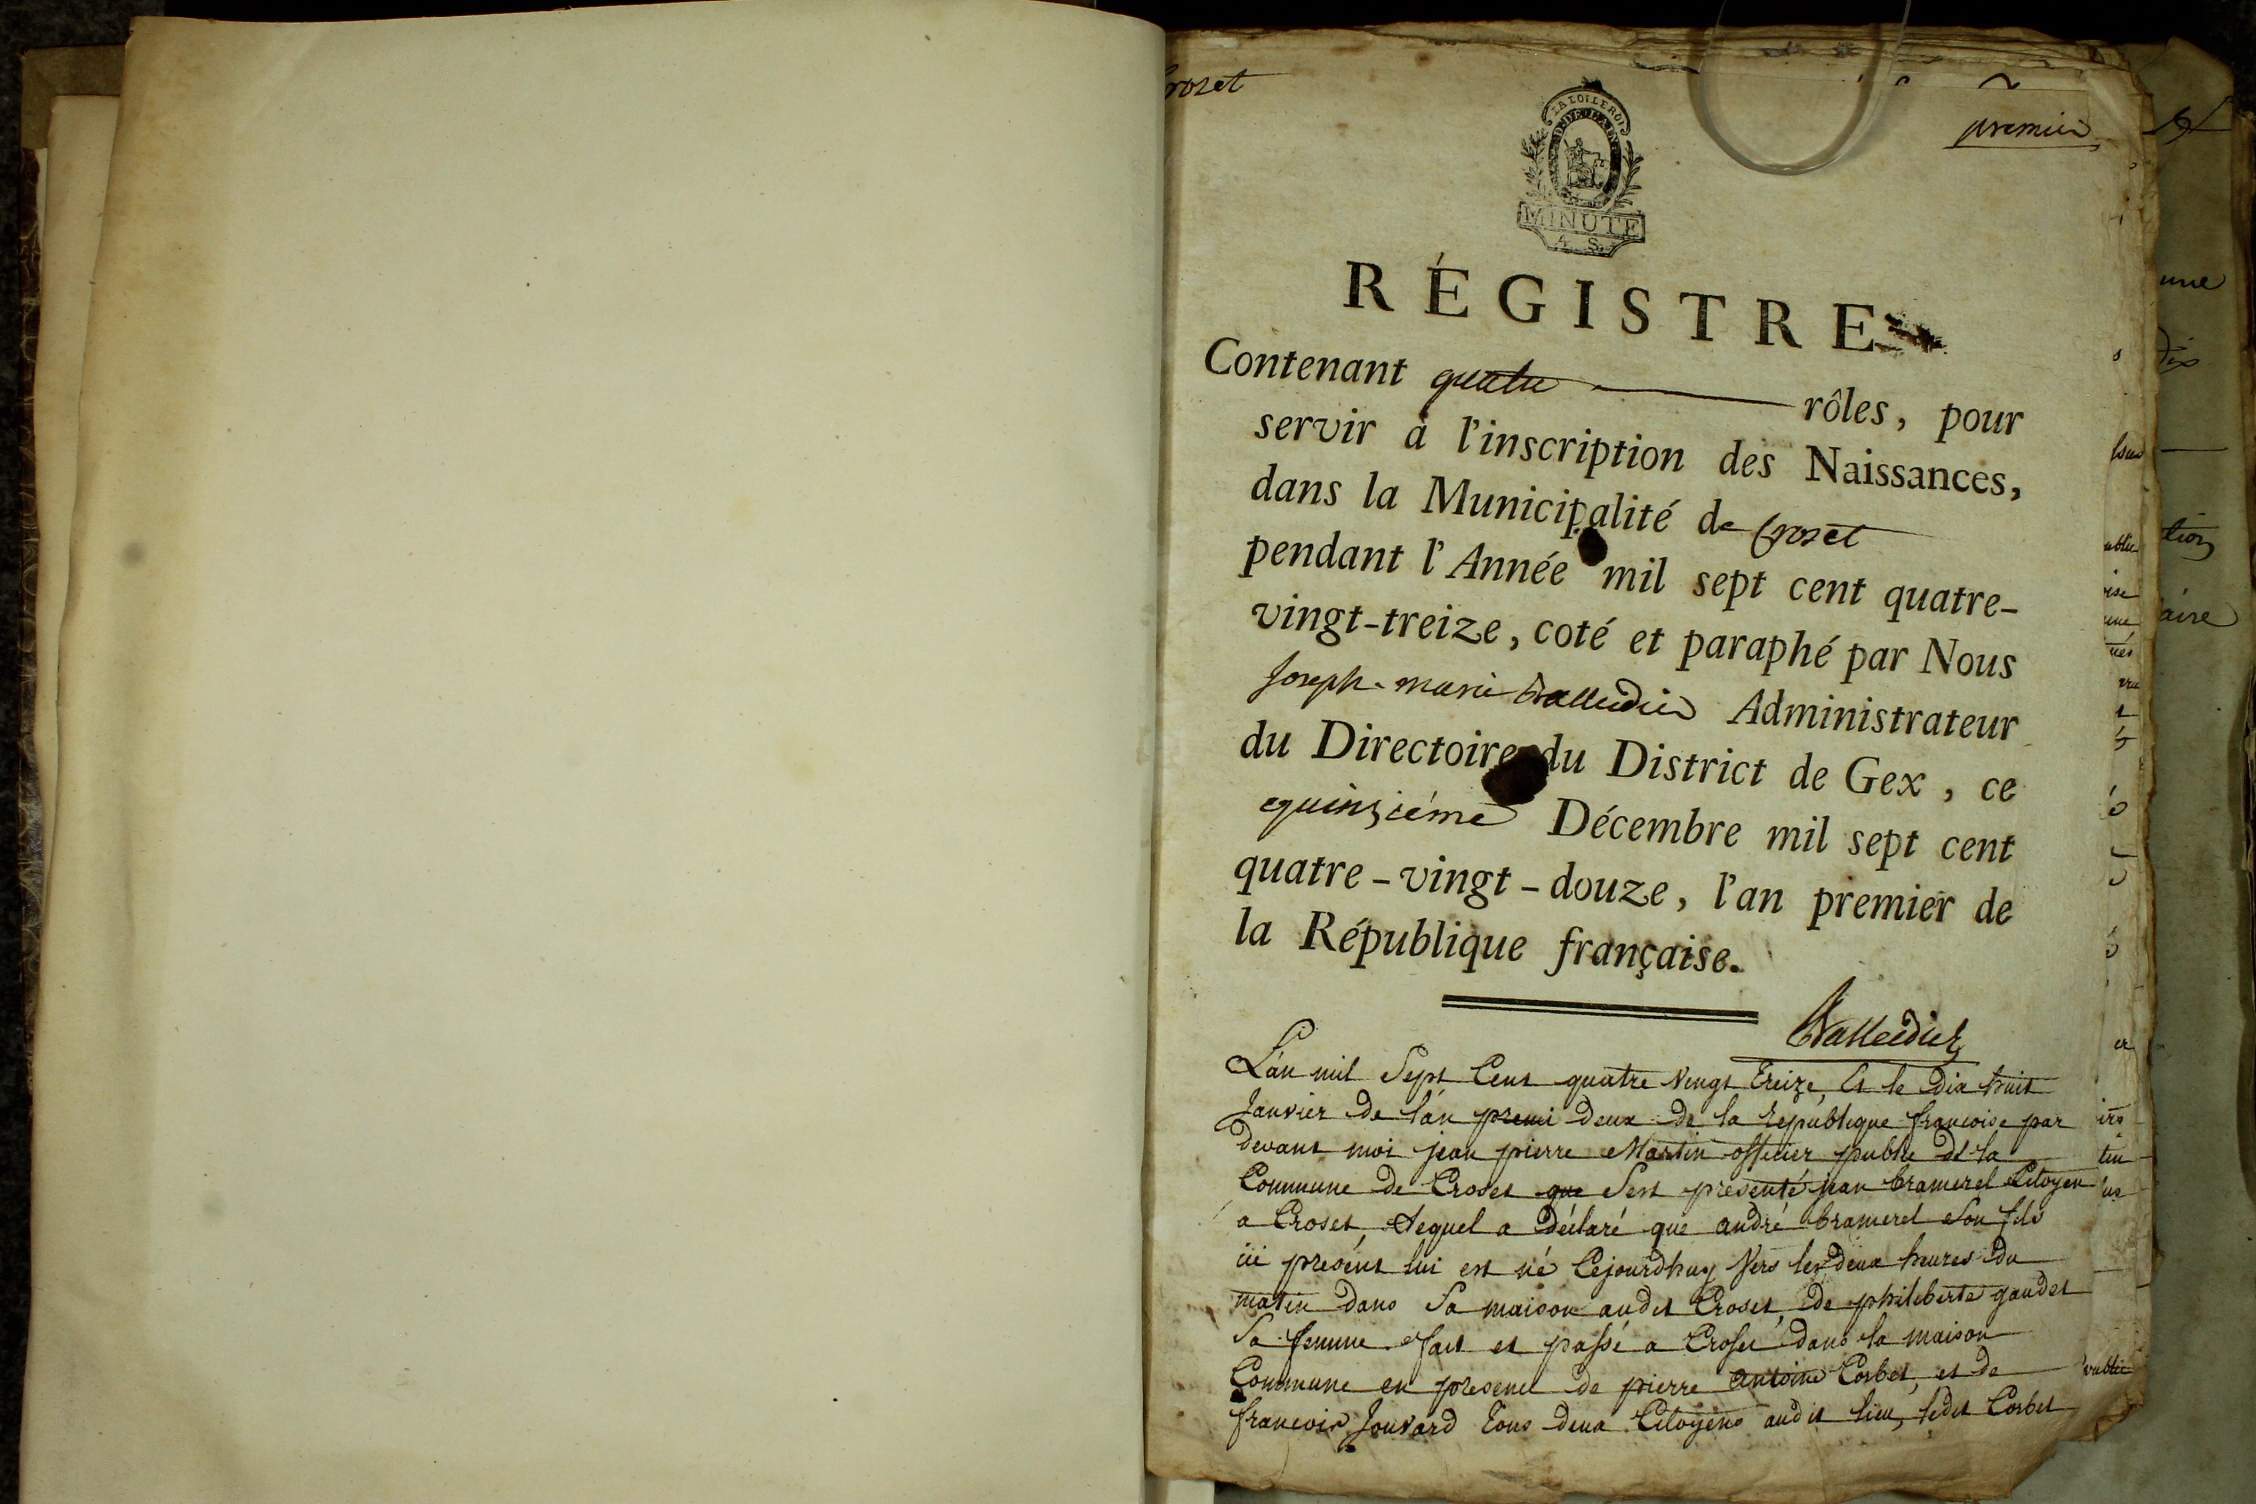 Crozet
premier
LA LOI LE ROI
MINUTE
4 S.
RÉGISTRE
Contenant quatre rôles, pour
servir à l'inscription des Naissances,
dans la Municipalité de Crozet
pendant l'Année mil sept cent quatre-
vingt-treize, coté et paraphé par Nous
Joseph-marie Administrateur
du Directoire du District de Gex, ce
quinziéme Décembre mil sept cent
quatre-vingt-douze, l'an premier de
la République française.
L'an mil Sept Cent quatre Vingt Treize, Et le dix huit
Janvier de l'an premi deux de la republique francoise par
devant moi jean pierre Martin officier public de la
Commune de Croset que S'est presenté jean bramerel Citoyen
a Croset, Lequel a déclaré que andré bramerel Son fils
ici présent lui est né Cejourdhuy Vers les deux heures du
matin dans Sa maison audit Croset, de philiberte gaudet
Sa femme fait et passé a Croset dans la maison
Commune en presence de pierre antoine Corbet, et de
francois Jouvard Tous deux Citoyens audit lieu, ledit Corbet
une
tion
aire